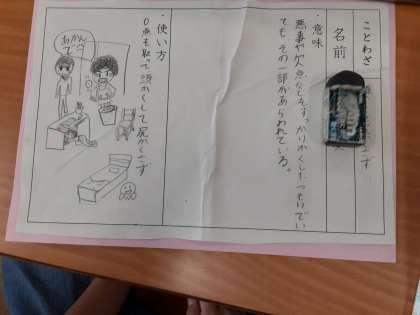 ことわざ
名前
・意味
悪事や欠点などをすっかりかくしたつもりでい
ても、その一部があらわれている。
・使い方
0点を取って頭かくして尻かくさず
あかん
でコ